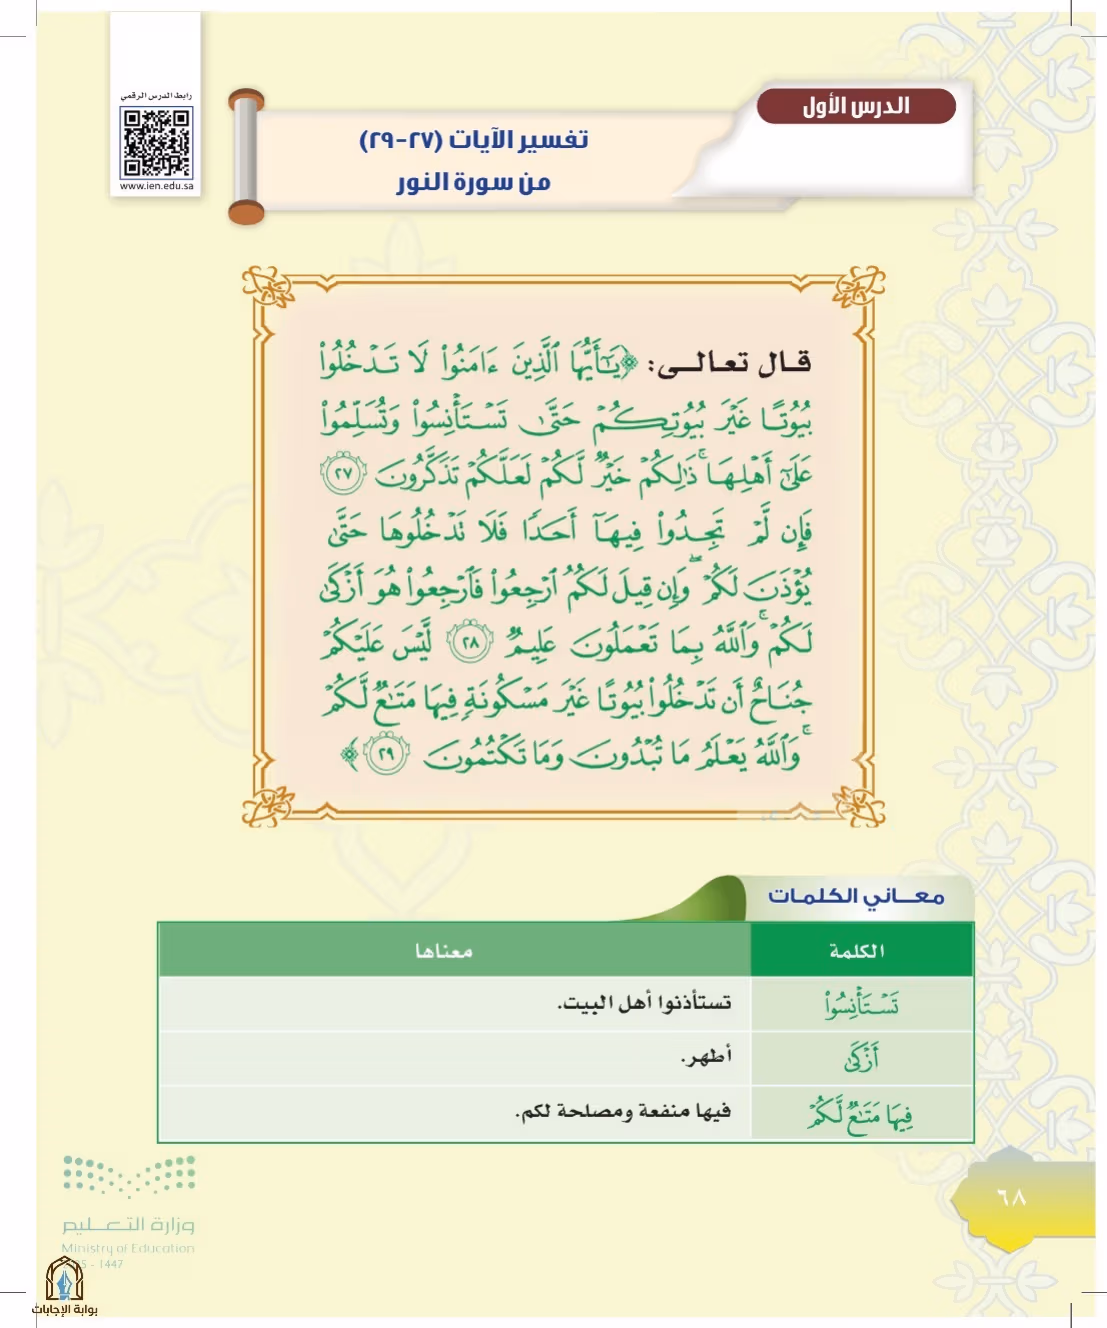 رابط الدرس الرقمي
www.ien.edu.sa
الدرس الأول
تفسير الآيات (٢٧-٢٩)
من سورة النور
قال تعالى: ﴿يَـٰٓأَيُّهَا ٱلَّذِينَ ءَامَنُوا۟ لَا تَدْخُلُوا۟
بُيُوتًا غَيْرَ بُيُوتِكُمْ حَتَّىٰ تَسْتَأْنِسُوا۟ وَتُسَلِّمُوا۟
عَلَىٰٓ أَهْلِهَا ۚ ذَٰلِكُمْ خَيْرٌ لَّكُمْ لَعَلَّكُمْ تَذَكَّرُونَ ٢٧
فَإِن لَّمْ تَجِدُوا۟ فِيهَآ أَحَدًا فَلَا تَدْخُلُوهَا حَتَّىٰ
يُؤْذَنَ لَكُمْ ۖ وَإِن قِيلَ لَكُمُ ٱرْجِعُوا۟ فَٱرْجِعُوا۟ هُوَ أَزْكَىٰ
لَكُمْ ۚ وَٱللَّهُ بِمَا تَعْمَلُونَ عَلِيمٌ ٢٨ لَّيْسَ عَلَيْكُمْ
جُنَاحٌ أَن تَدْخُلُوا۟ بُيُوتًا غَيْرَ مَسْكُونَةٍ فِيهَا مَتَـٰعٌ لَّكُمْ
ۚ وَٱللَّهُ يَعْلَمُ مَا تُبْدُونَ وَمَا تَكْتُمُونَ ٢٩﴾
معاني الكلمات
الكلمة معناها
تَسْتَأْنِسُوا۟ تستأذنوا أهل البيت.
أَزْكَىٰ أطهر.
فِيهَا مَتَـٰعٌ لَّكُمْ فيها منفعة ومصلحة لكم.
٦٨
وزارة التعليم
Ministry of Education
5 - 1447
بوابة الإجابات